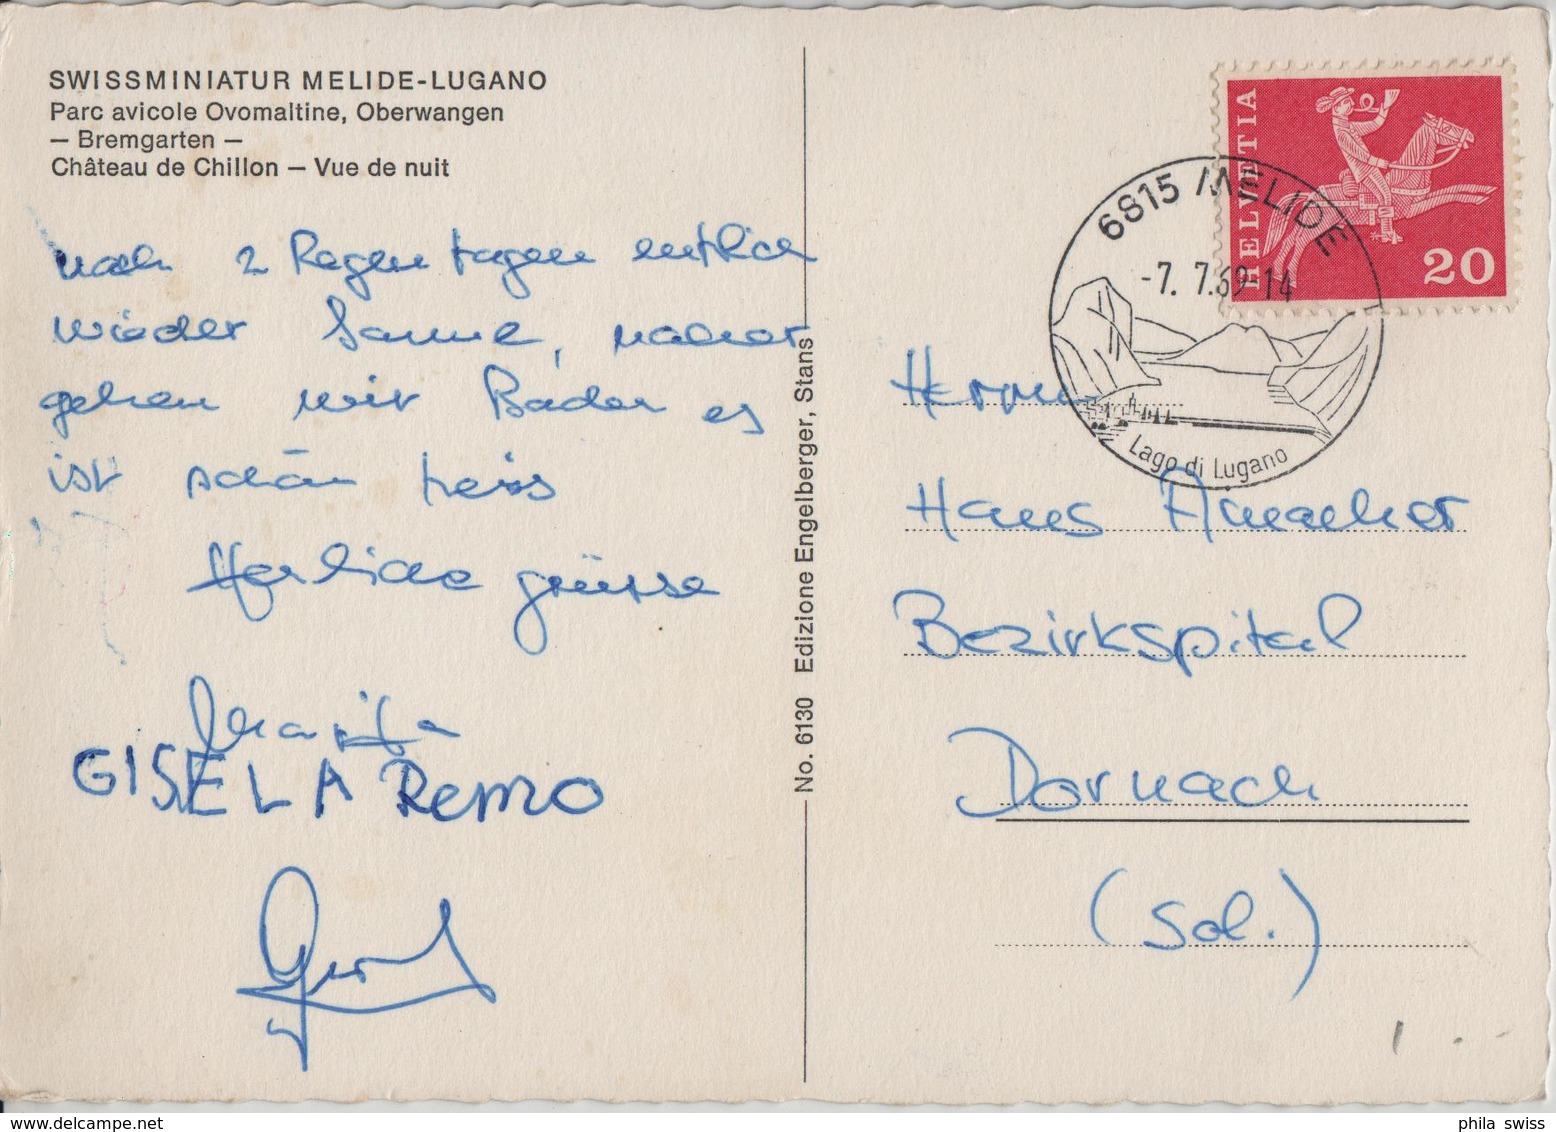 SWISSMINIATUR MELIDE-LUGANO
Parc avicole Ovomaltine, Oberwangen
— Bremgarten —
Château de Chillon — Vue de nuit
nach 2 Regentagen entlich
wieder Sonne, nacher
gehen wir Baden es
ist schön heiss
Herliche grüsse
Marita
GISELA Remo
No. 6130 Edizione Engelberger, Stans
HELVETIA
20
6815 MELIDE
-7. 7.69-14
Lago di Lugano
Herrn
Hans Amacher
Bezirkspital
Dornach
(Sol.)
phila swiss
www.delcampe.net